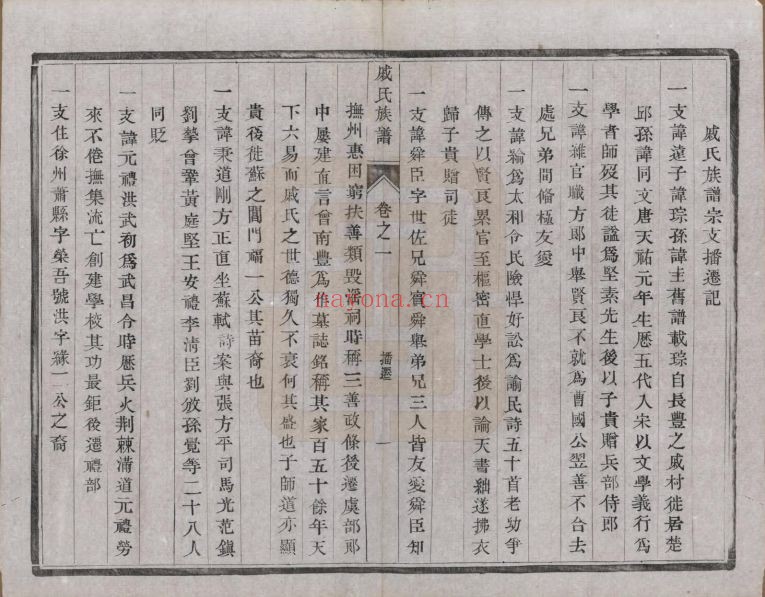 戚氏族譜宗支播遷記
一支諱遠子諱琮孫諱圭舊譜載琮自長豐之戚村徙居楚
邱孫諱同文唐天祐元年生歷五代入宋以文學義行爲
學者師歿其徒諡爲堅素先生後以子貴贈兵部侍郎
一支諱維官職方郎中舉賢良不就爲曹國公翌善不合去
處兄弟間脩極友愛
一支諱綸爲太和令民險悍好訟爲諭民詩五十首老幼爭
傳之以賢良累官至樞密直學士後以論天書絀遂拂衣
歸子貴贈司徒
一支諱舜臣字世佐兄舜賓舜舉弟兄三人皆友愛舜臣知
戚氏族譜
卷之一
播遷
一
撫州惠困窮扶善類毀淫祠時稱三善政條後遷虞部郎
中屢建直言會南豐爲作墓誌銘稱其家百五十餘年天
下六易而戚氏之世德獨久不衰何其盛也子師道亦顯
貴後徙蘇之閶門福一公其苗裔也
一支諱秉道剛方正直坐蘇軾詩案與張方平司馬光范鎮
劉摯會鞏黃庭堅王安禮李清臣劉攽孫覺等二十八人
同貶
一支諱元禮洪武初爲武昌令時歷兵火荆棘滿道元禮勞
來不倦撫集流亡創建學校其功最鉅後遷禮部
一支住徐州蕭縣字榮吾號洪字緣一公之裔
navona.cn